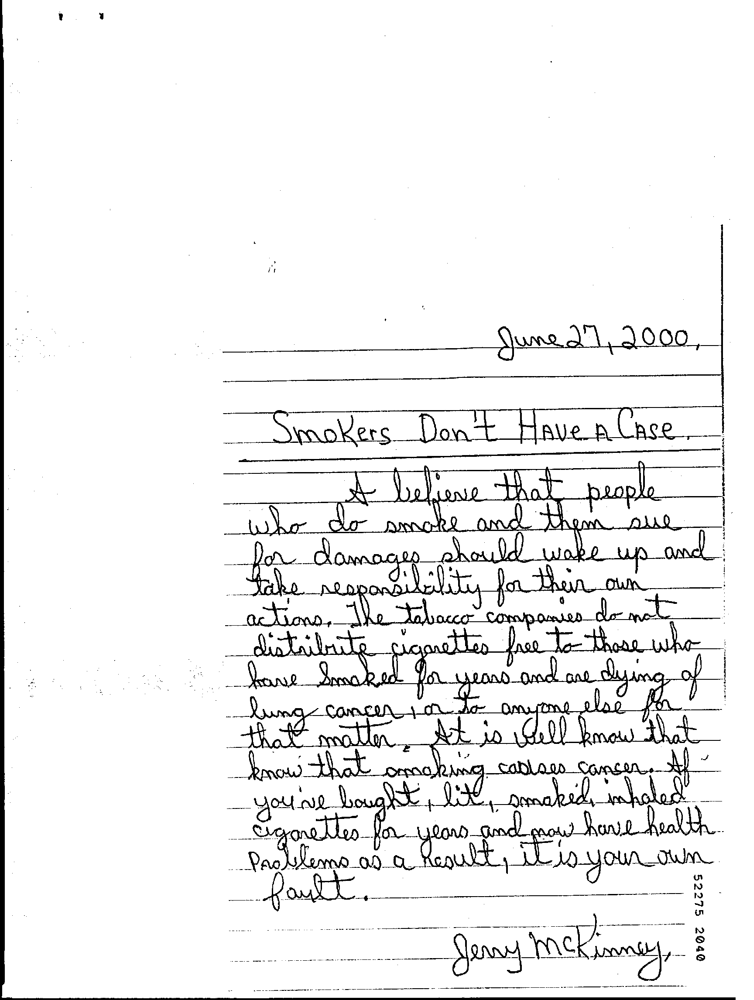 June 27, 2000,
Smokers Don't Have A Case.
I believe that people
who do smoke and them sue
for damages should wake up and
take responsibility for their own
actions. The tobacco companies do not
distribute cigarettes free to those who
have smoked for years and are dying of
lung cancer, or to anyone else for
that matter. It is well know that
know that smoking causes cancer. If
you've bought, lit, smoked, inhaled
cigarettes for years and now have health
Problems as a result, it is your own
fault.
Jerry McKinney,
52275 2040